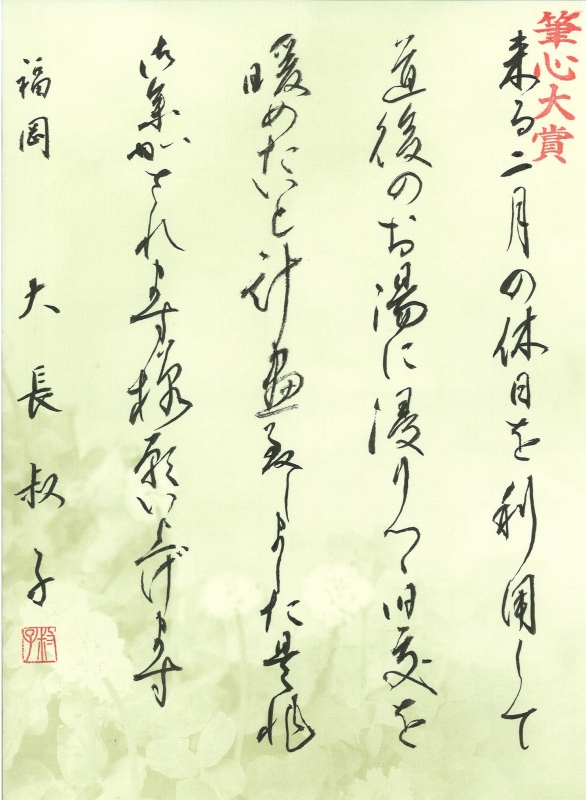 筆心大賞
来る二月の休日を利用して
道後のお湯に浸りつゝ旧交を
暖めたいと計画致しました是非
御参加されます様願い上げます
福岡 大長叔子
叔子